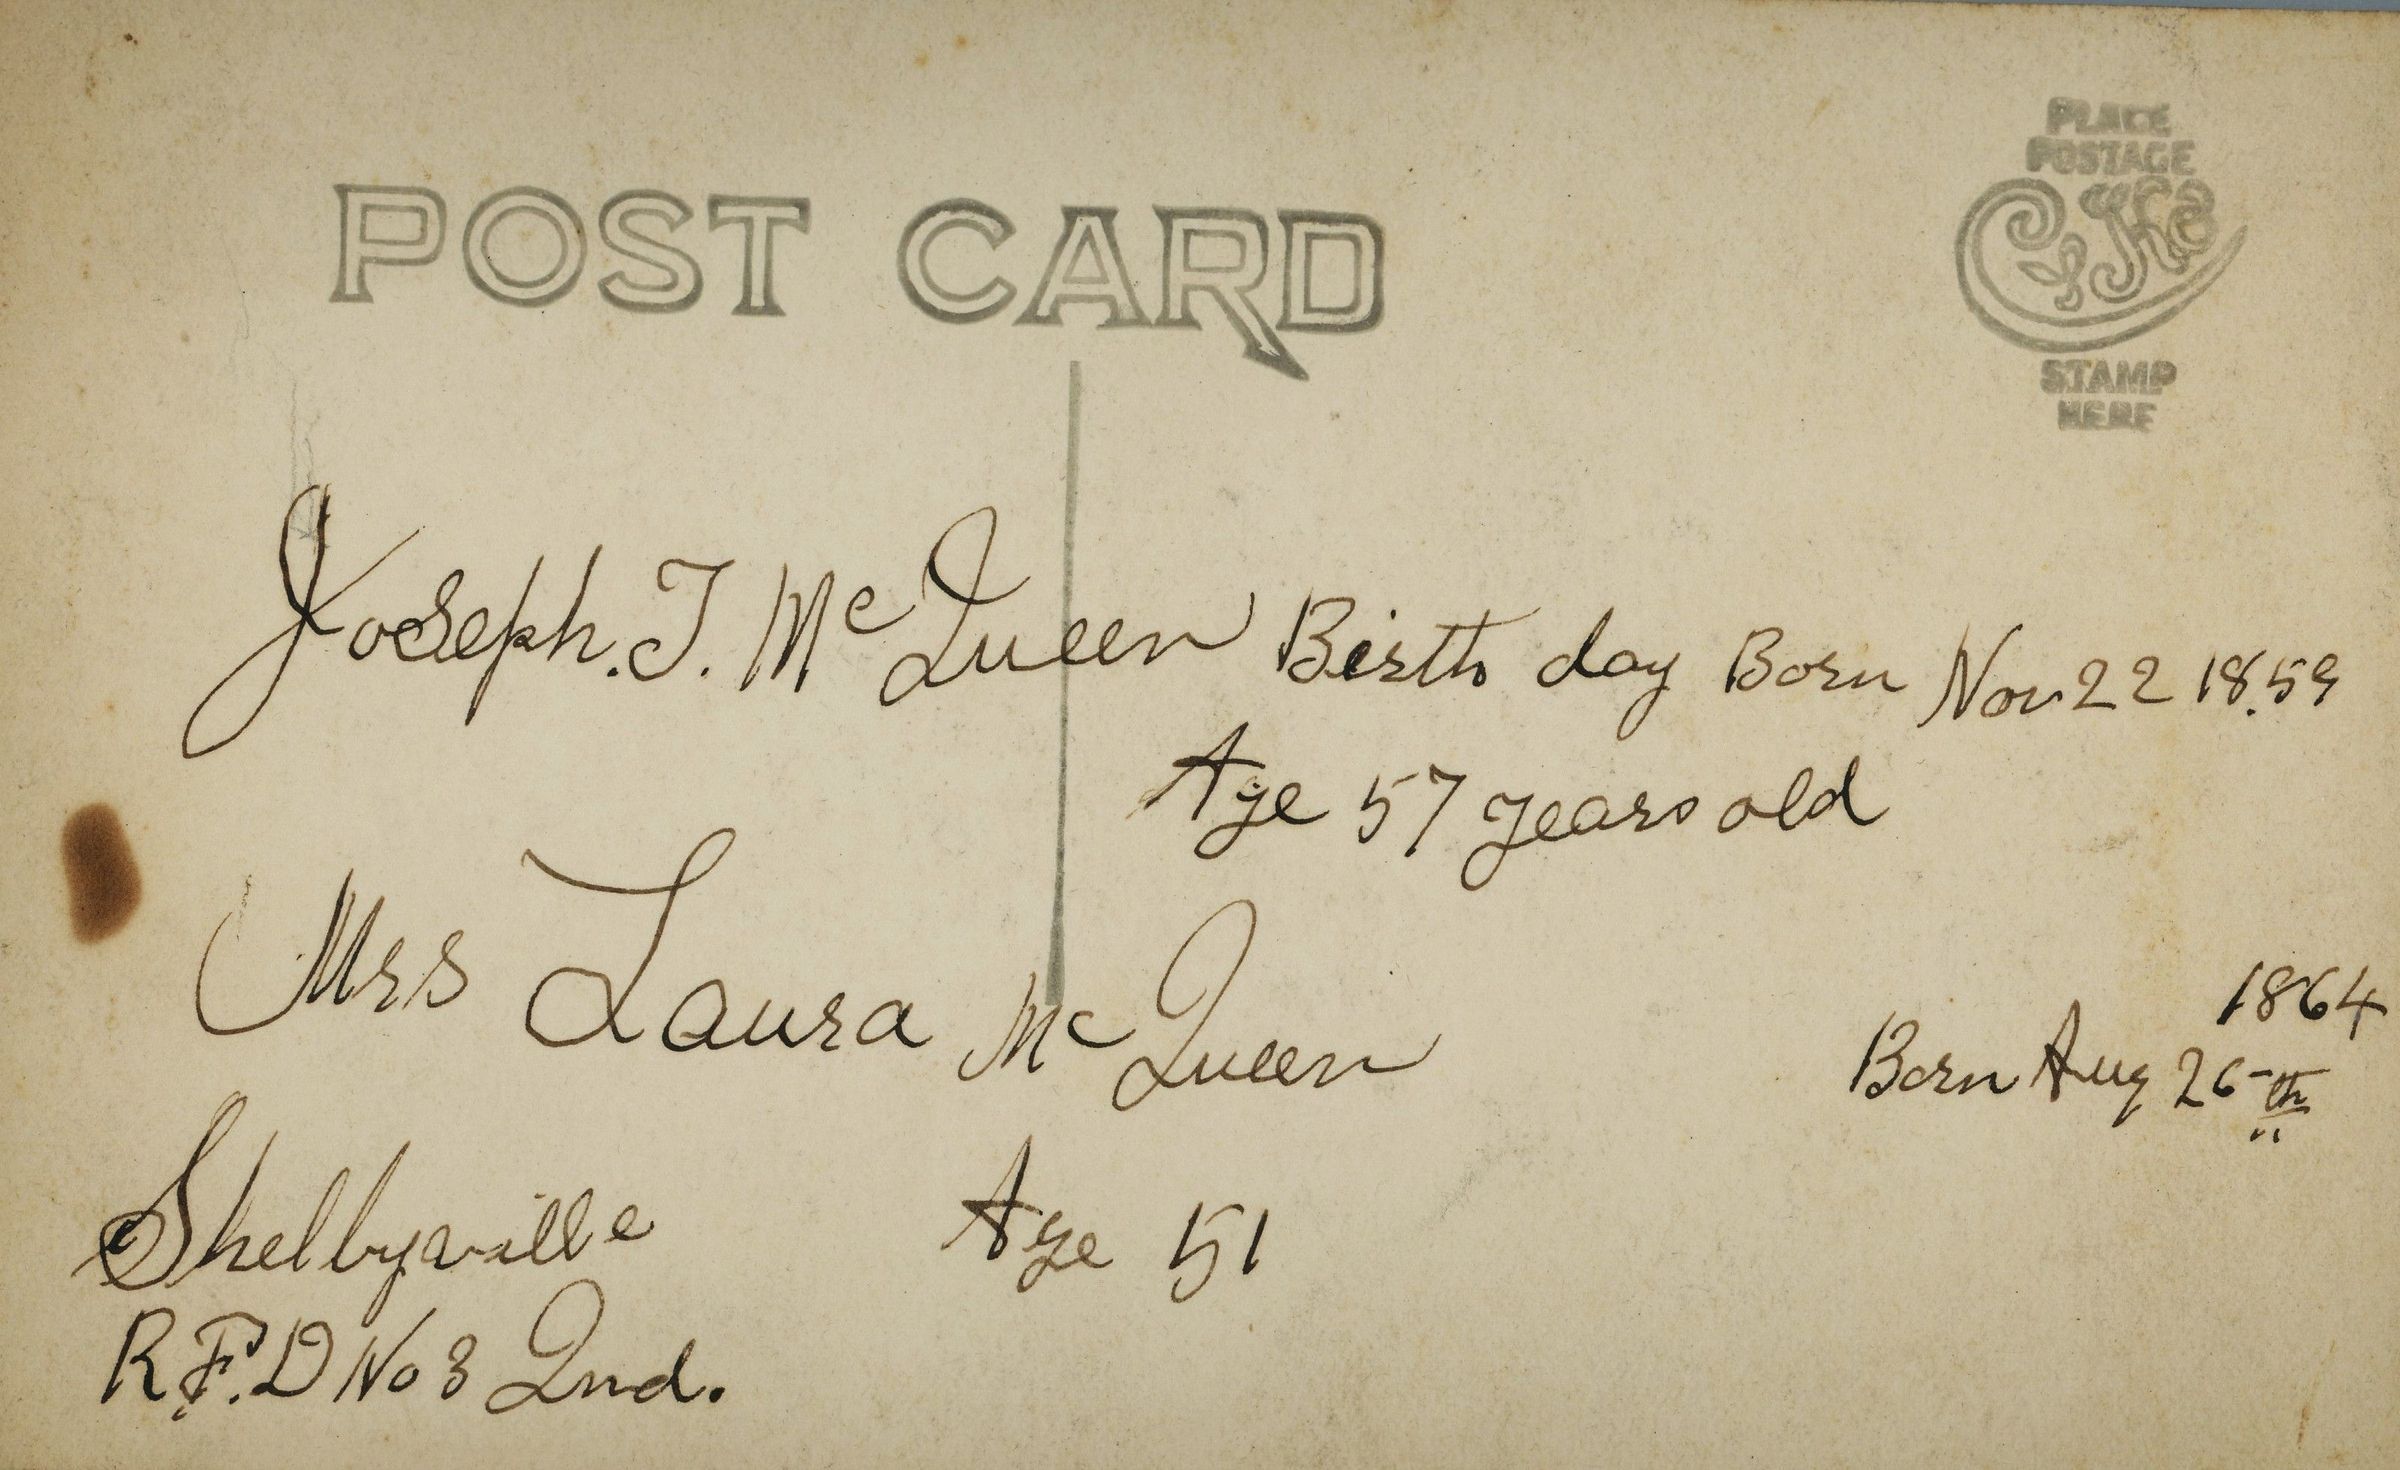 POST CARD
PLACE
POSTAGE
CYKO
STAMP
HERE
Joseph. T. Mc Queen Birth day Born Nov 22 18.59
Age 57 years old
Mrs Laura Mc Queen
1864
Born Aug 26-th
Shellyville
Age 51
R.F.D No 3 Ind.